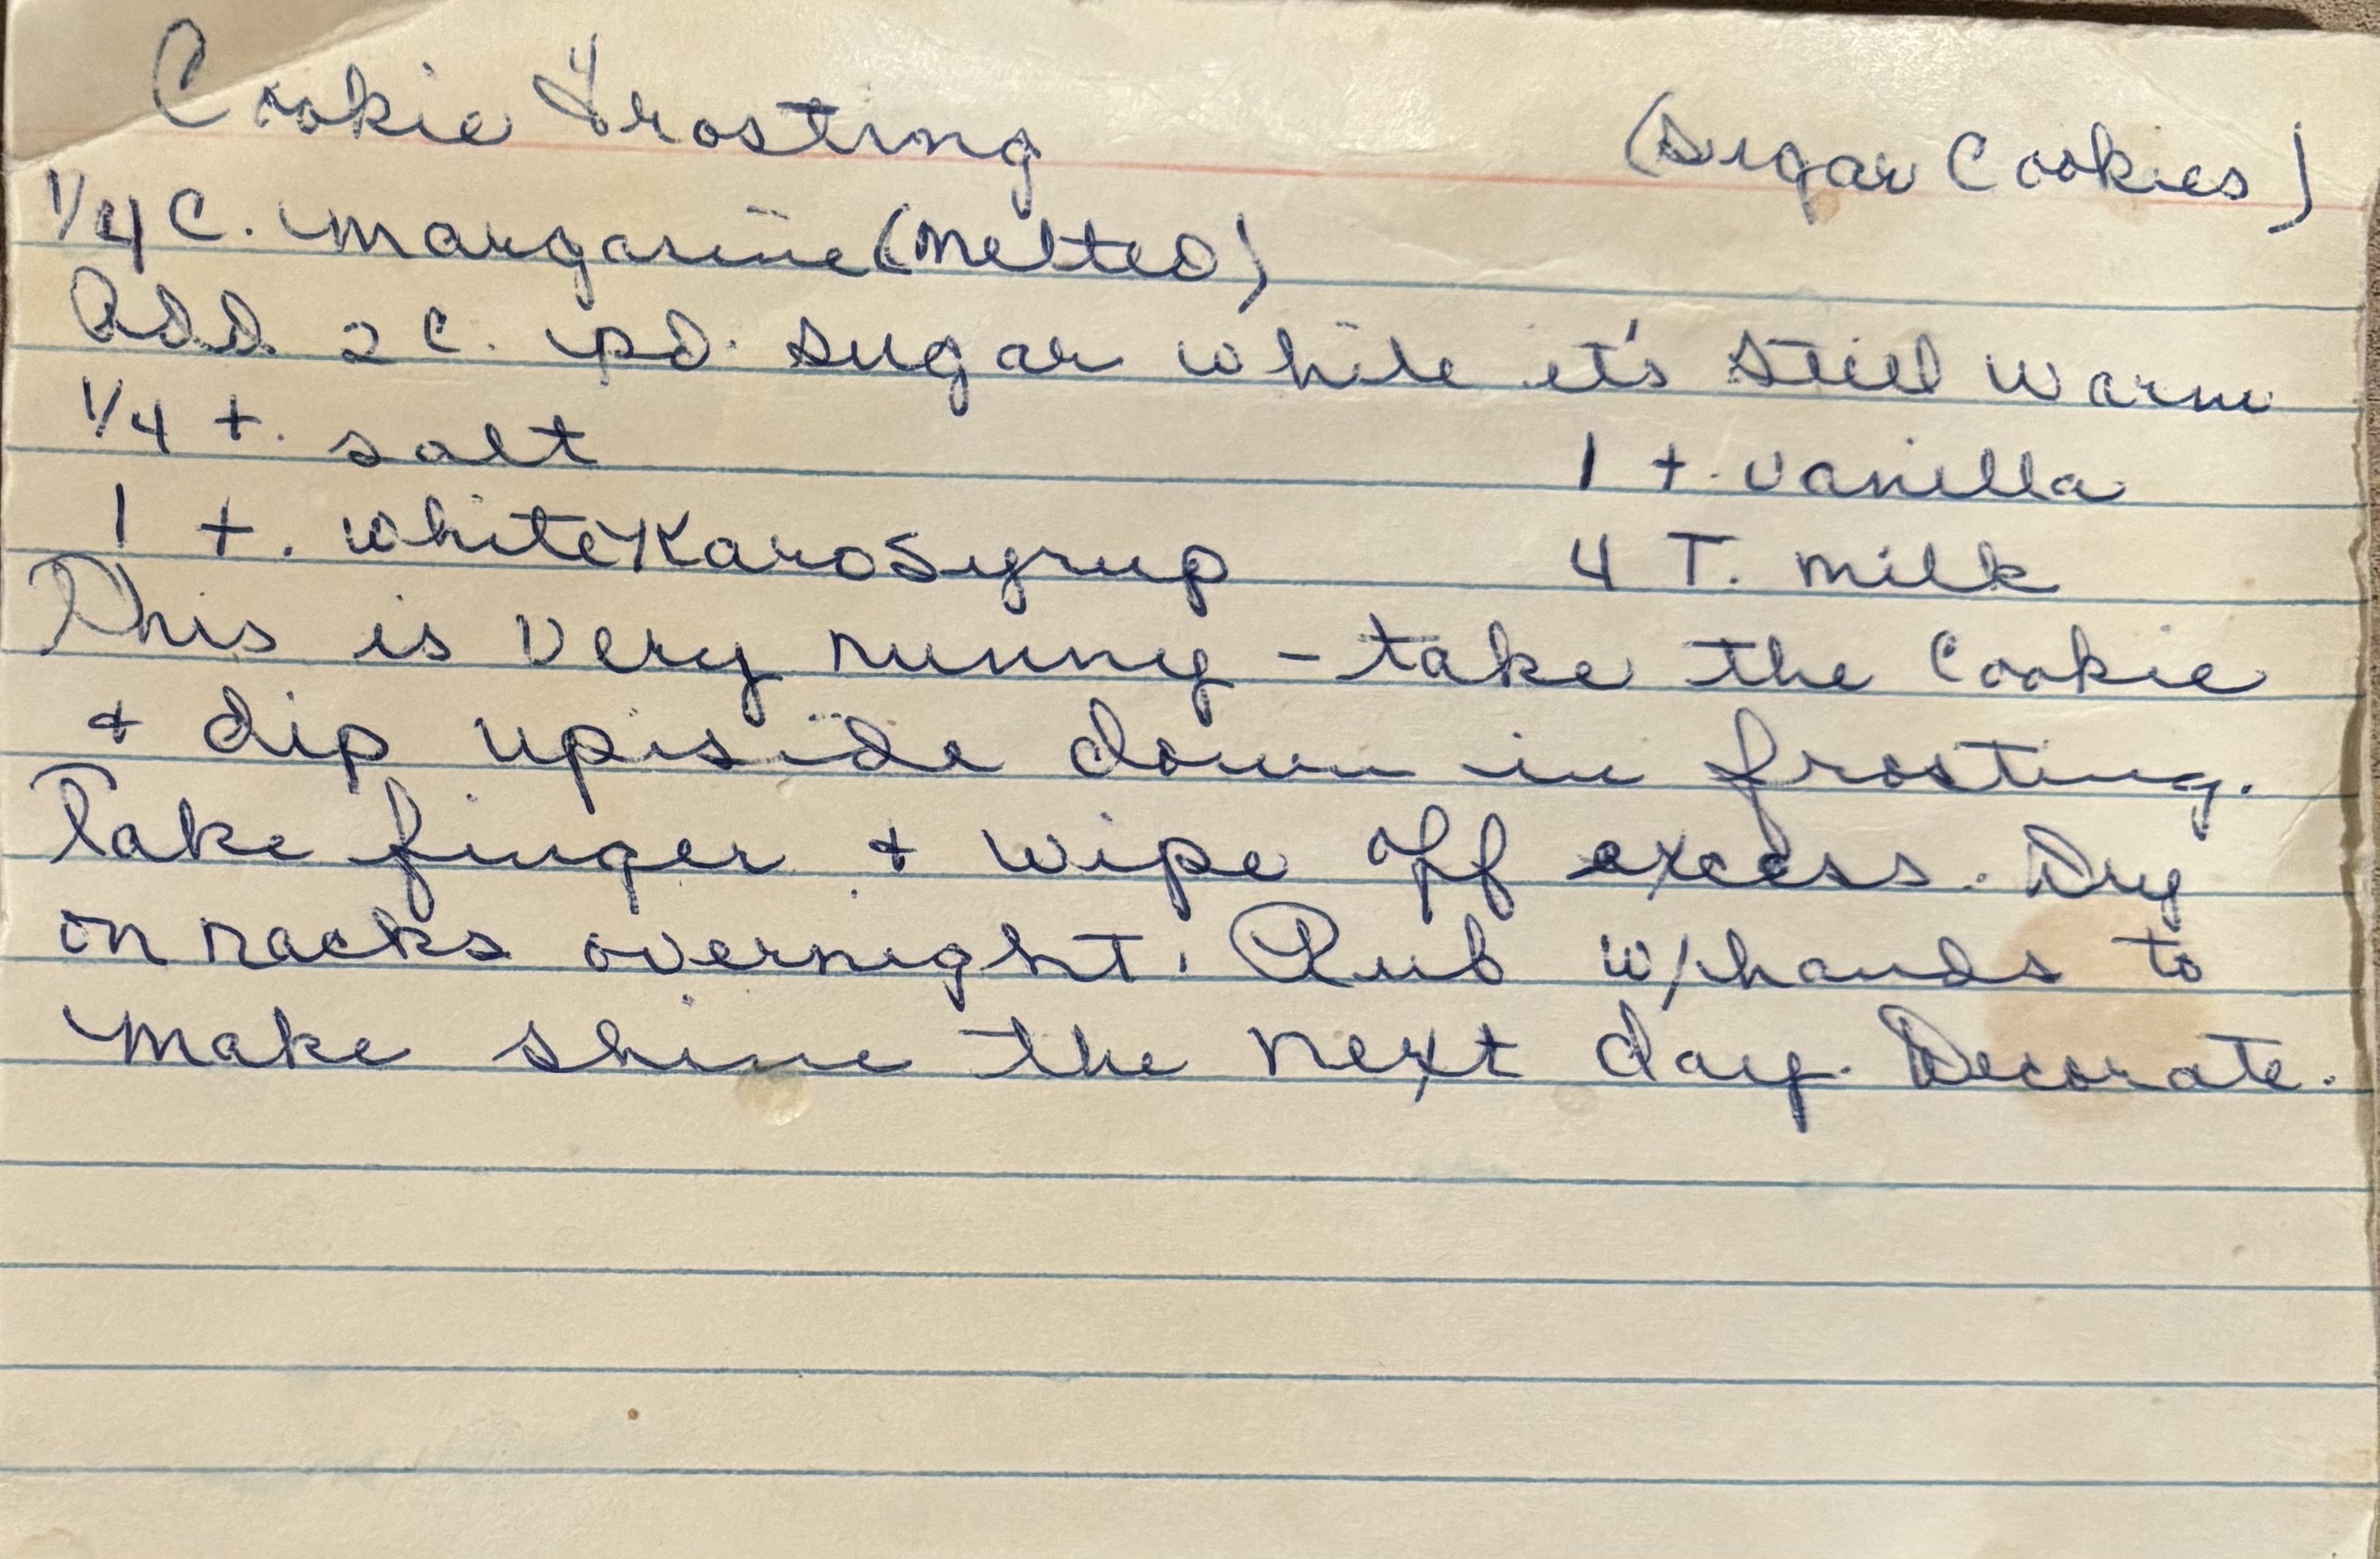 Cookie Frosting (Sugar Cookies)
1/4 C. margarine (melted)
Add 2 C. pd. sugar while it's still warm
1/4 t. salt 1 t. vanilla
1 t. white Karo Syrup 4 T. milk
This is very runny - take the cookie
+ dip upside down in frosting.
Take finger + wipe off excess. Dry
on racks overnight. Rub w/hands to
make shine the next day. Decorate.